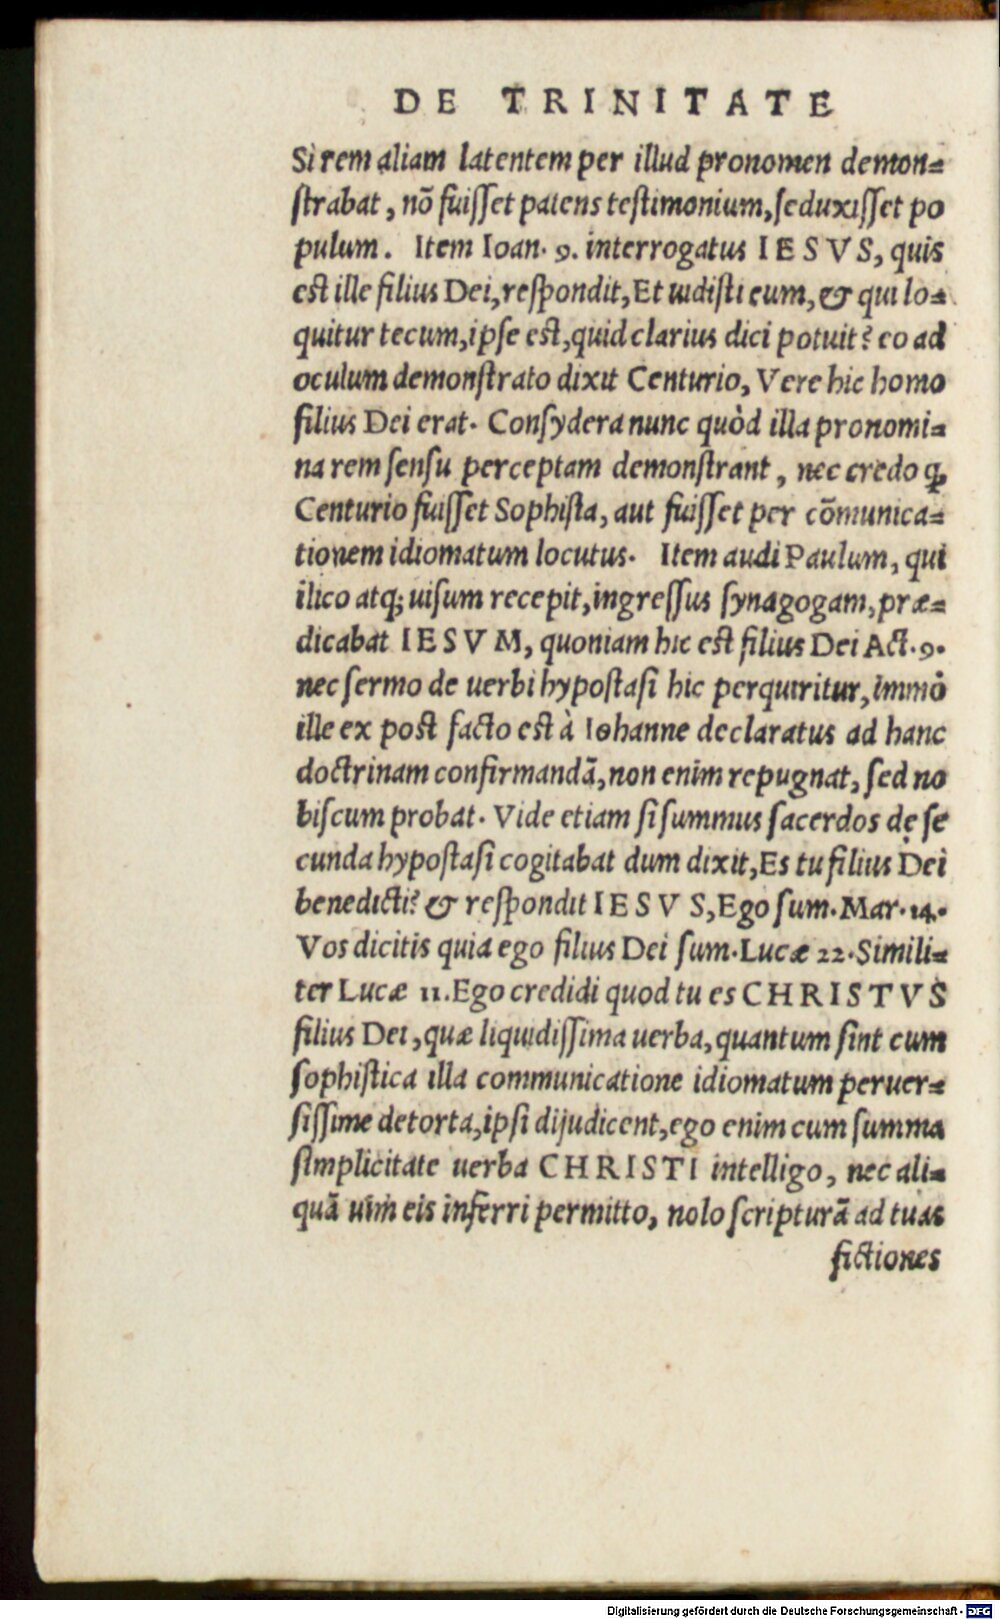 DE TRINITATE
Si rem aliam latentem per illud pronomen demon-
ſtrabat, nõ fuiſſet patens teſtimonium, ſeduxiſſet po
pulum. Item Ioan. 9. interrogatus IESVS, quis
eſt ille filius Dei, reſpondit, Et uidiſti eum, & qui lo-
quitur tecum, ipſe eſt, quid clarius dici potuit? eo ad
oculum demonſtrato dixit Centurio, Vere hic homo
filius Dei erat. Conſydera nunc quòd illa pronomi-
na rem ſenſu perceptam demonſtrant, nec credo ꝙ
Centurio fuiſſet Sophiſta, aut fuiſſet per cõmunica-
tionem idiomatum locutus. Item audi Paulum, qui
ilico atq; uiſum recepit, ingreſſus ſynagogam, præ-
dicabat IESVM, quoniam hic eſt filius Dei Act. 9.
nec ſermo de uerbi hypoſtaſi hic perquiritur, immò
ille ex poſt facto eſt à Iohanne declaratus ad hanc
doctrinam confirmandã, non enim repugnat, ſed no
biſcum probat. Vide etiam ſi ſummus ſacerdos de ſe
cunda hypoſtaſi cogitabat dum dixit, Es tu filius Dei
benedicti? & reſpondit IESVS, Ego ſum. Mar. 14.
Vos dicitis quia ego filius Dei ſum. Lucæ 22. Simili-
ter Lucæ 11. Ego credidi quod tu es CHRISTVS
filius Dei, quæ liquidiſſima uerba, quantum ſint cum
ſophiſtica illa communicatione idiomatum peruer-
ſiſſime detorta, ipſi dijudicent, ego enim cum ſumma
ſimplicitate uerba CHRISTI intelligo, nec ali-
quã uim eis inferri permitto, nolo ſcripturã ad tuas
fictiones
Digitalisierung gefördert durch die Deutsche Forschungsgemeinschaft - DFG